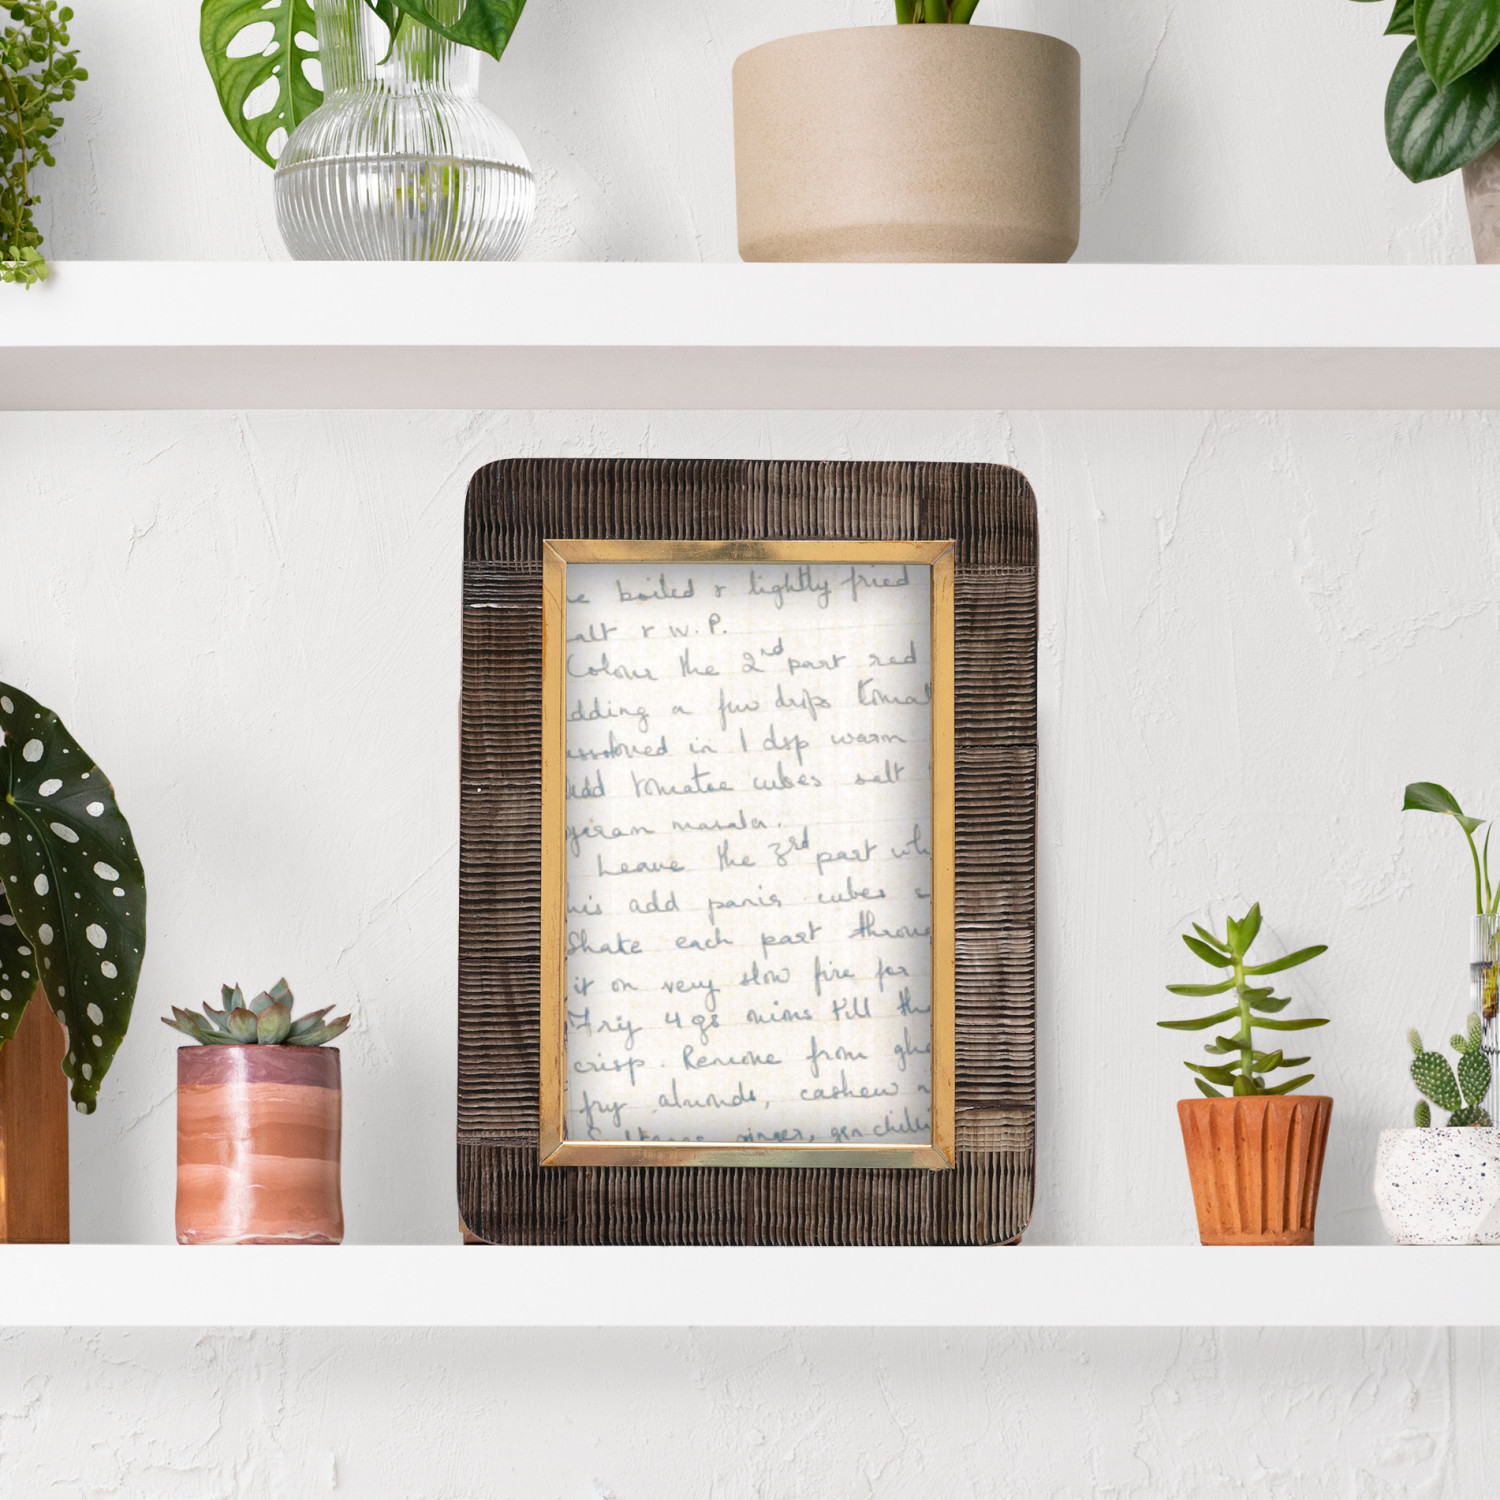 boiled & lightly fried
alt & W.P.
Colour the 2nd part red
dding a few drops tomat
in 1 dsp warm
add tomatoe cubes salt
giram masala.
Leave the 3rd part wh
his add panir cubes
Shake each part throug
it on very slow fire for
Fry 4 gs onions till the
crisp. Remove from ghe
fry almonds, cashew n
ginger, grn chilli